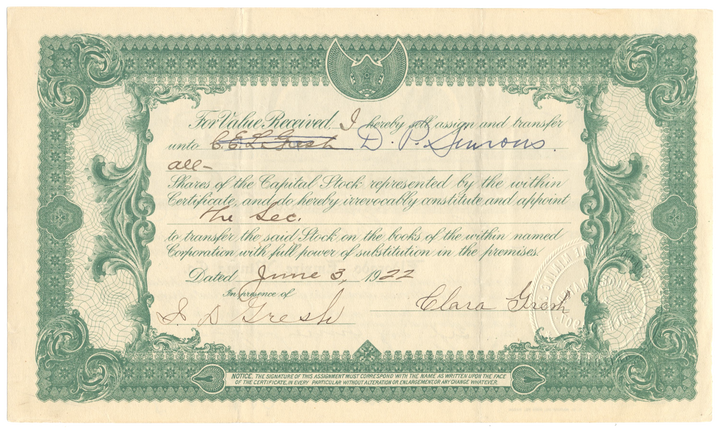 For Value Received, I hereby sell, assign and transfer
unto C E L Gresh D. P. Simrons.
all-
Shares of the Capital Stock represented by the within
Certificate, and do hereby irrevocably constitute and appoint
The Sec.
to transfer the said Stock on the books of the within named
Corporation with full power of substitution in the premises.
Dated June 3, 1922
In presence of
S D Gresh Clara Gresh
NOTICE, THE SIGNATURE OF THIS ASSIGNMENT MUST CORRESPOND WITH THE NAME AS WRITTEN UPON THE FACE
OF THE CERTIFICATE, IN EVERY PARTICULAR WITHOUT ALTERATION OR ENLARGEMENT OR ANY CHANGE WHATEVER.